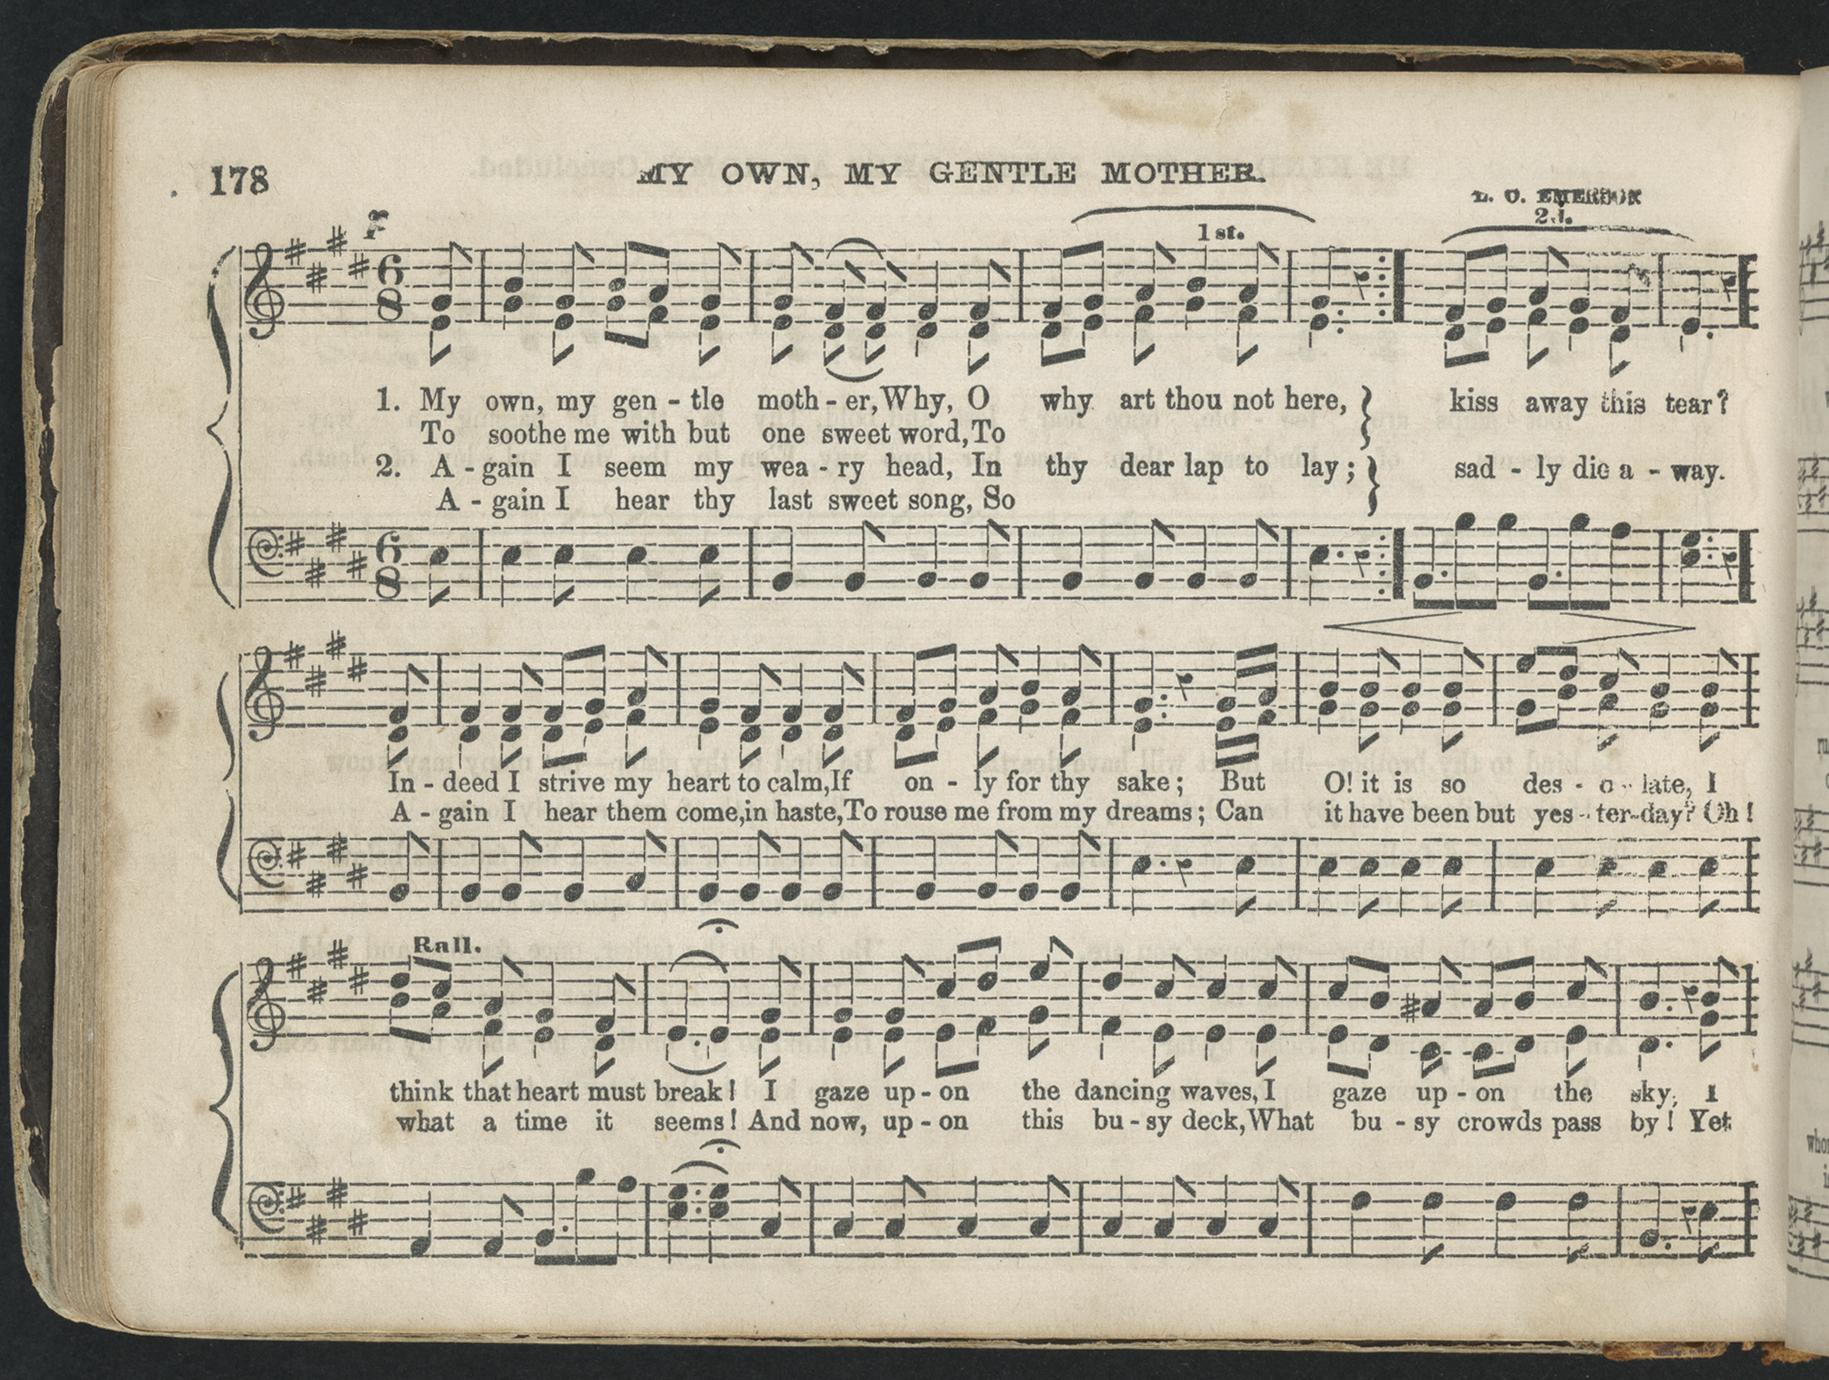 178
MY OWN, MY GENTLE MOTHER.
L. O. EMERSON
F
1st.
2d.
6
8
1. My own, my gen - tle moth - er, Why, O why art thou not here, } kiss away this tear?
To soothe me with but one sweet word, To
2. A - gain I seem my wea - ry head, In thy dear lap to lay; } sad - ly die a - way.
A - gain I hear thy last sweet song, So
6
8
In - deed I strive my heart to calm, If on - ly for thy sake; But O! it is so des - o - late, I
A - gain I hear them come, in haste, To rouse me from my dreams; Can it have been but yes - ter-day? Oh!
Rall.
think that heart must break! I gaze up - on the dancing waves, I gaze up - on the sky, I
what a time it seems! And now, up - on this bu - sy deck, What bu - sy crowds pass by! Yet